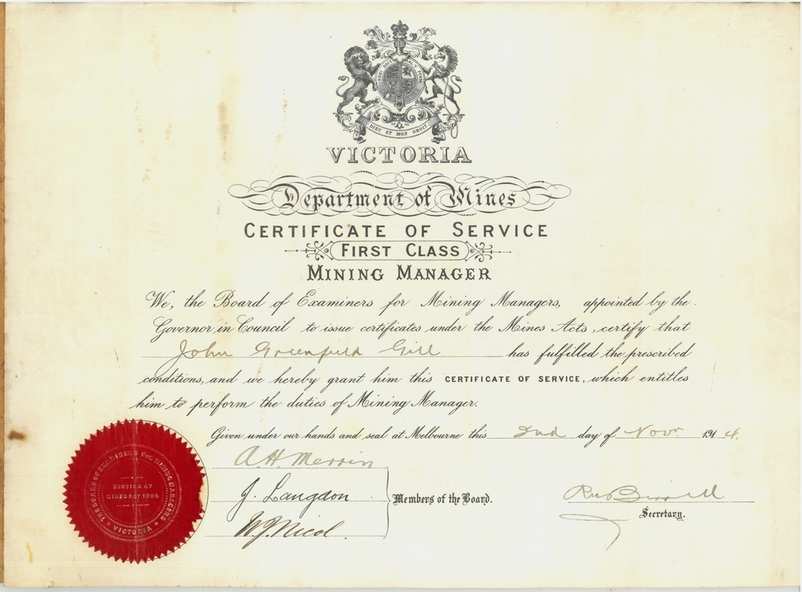 DIEU ET MON DROIT
VICTORIA
Department of Mines
CERTIFICATE OF SERVICE
FIRST CLASS
MINING MANAGER
We, the Board of Examiners for Mining Managers, appointed by the
Governor in Council to issue certificates under the Mines Acts, certify that
John Greenfield Gill has fulfilled the prescribed
conditions, and we hereby grant him this CERTIFICATE OF SERVICE, which entitles
him to perform the duties of Mining Manager.
Given under our hands and seal at Melbourne this 2nd day of Novr 1914.
A.H. Merrin
J. Langdon
W.J. Nicol.
Members of the Board.
Secretary.
THE BOARD OF EXAMINERS FOR MINING MANAGERS
VICTORIA